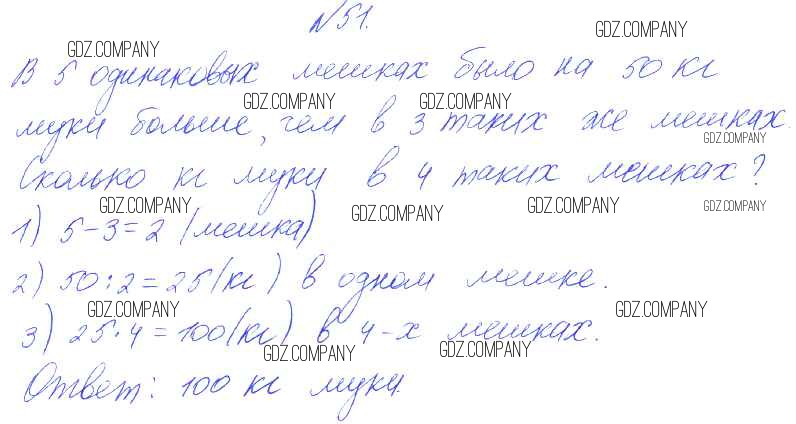 №51.
В 5 одинаковых мешках было на 50 кг
муки больше, чем в 3 таких же мешках.
Сколько кг муки в 4 таких мешках?
1) 5-3=2 (мешка)
2) 50:2=25(кг) в одном мешке.
3) 25·4=100(кг) в 4-х мешках.
Ответ: 100 кг муки.
GDZ.COMPANY
GDZ.COMPANY
GDZ.COMPANY
GDZ.COMPANY
GDZ.COMPANY
GDZ.COMPANY
GDZ.COMPANY
GDZ.COMPANY
GDZ.COMPANY
GDZ.COMPANY
GDZ.COMPANY
GDZ.COMPANY
GDZ.COMPANY